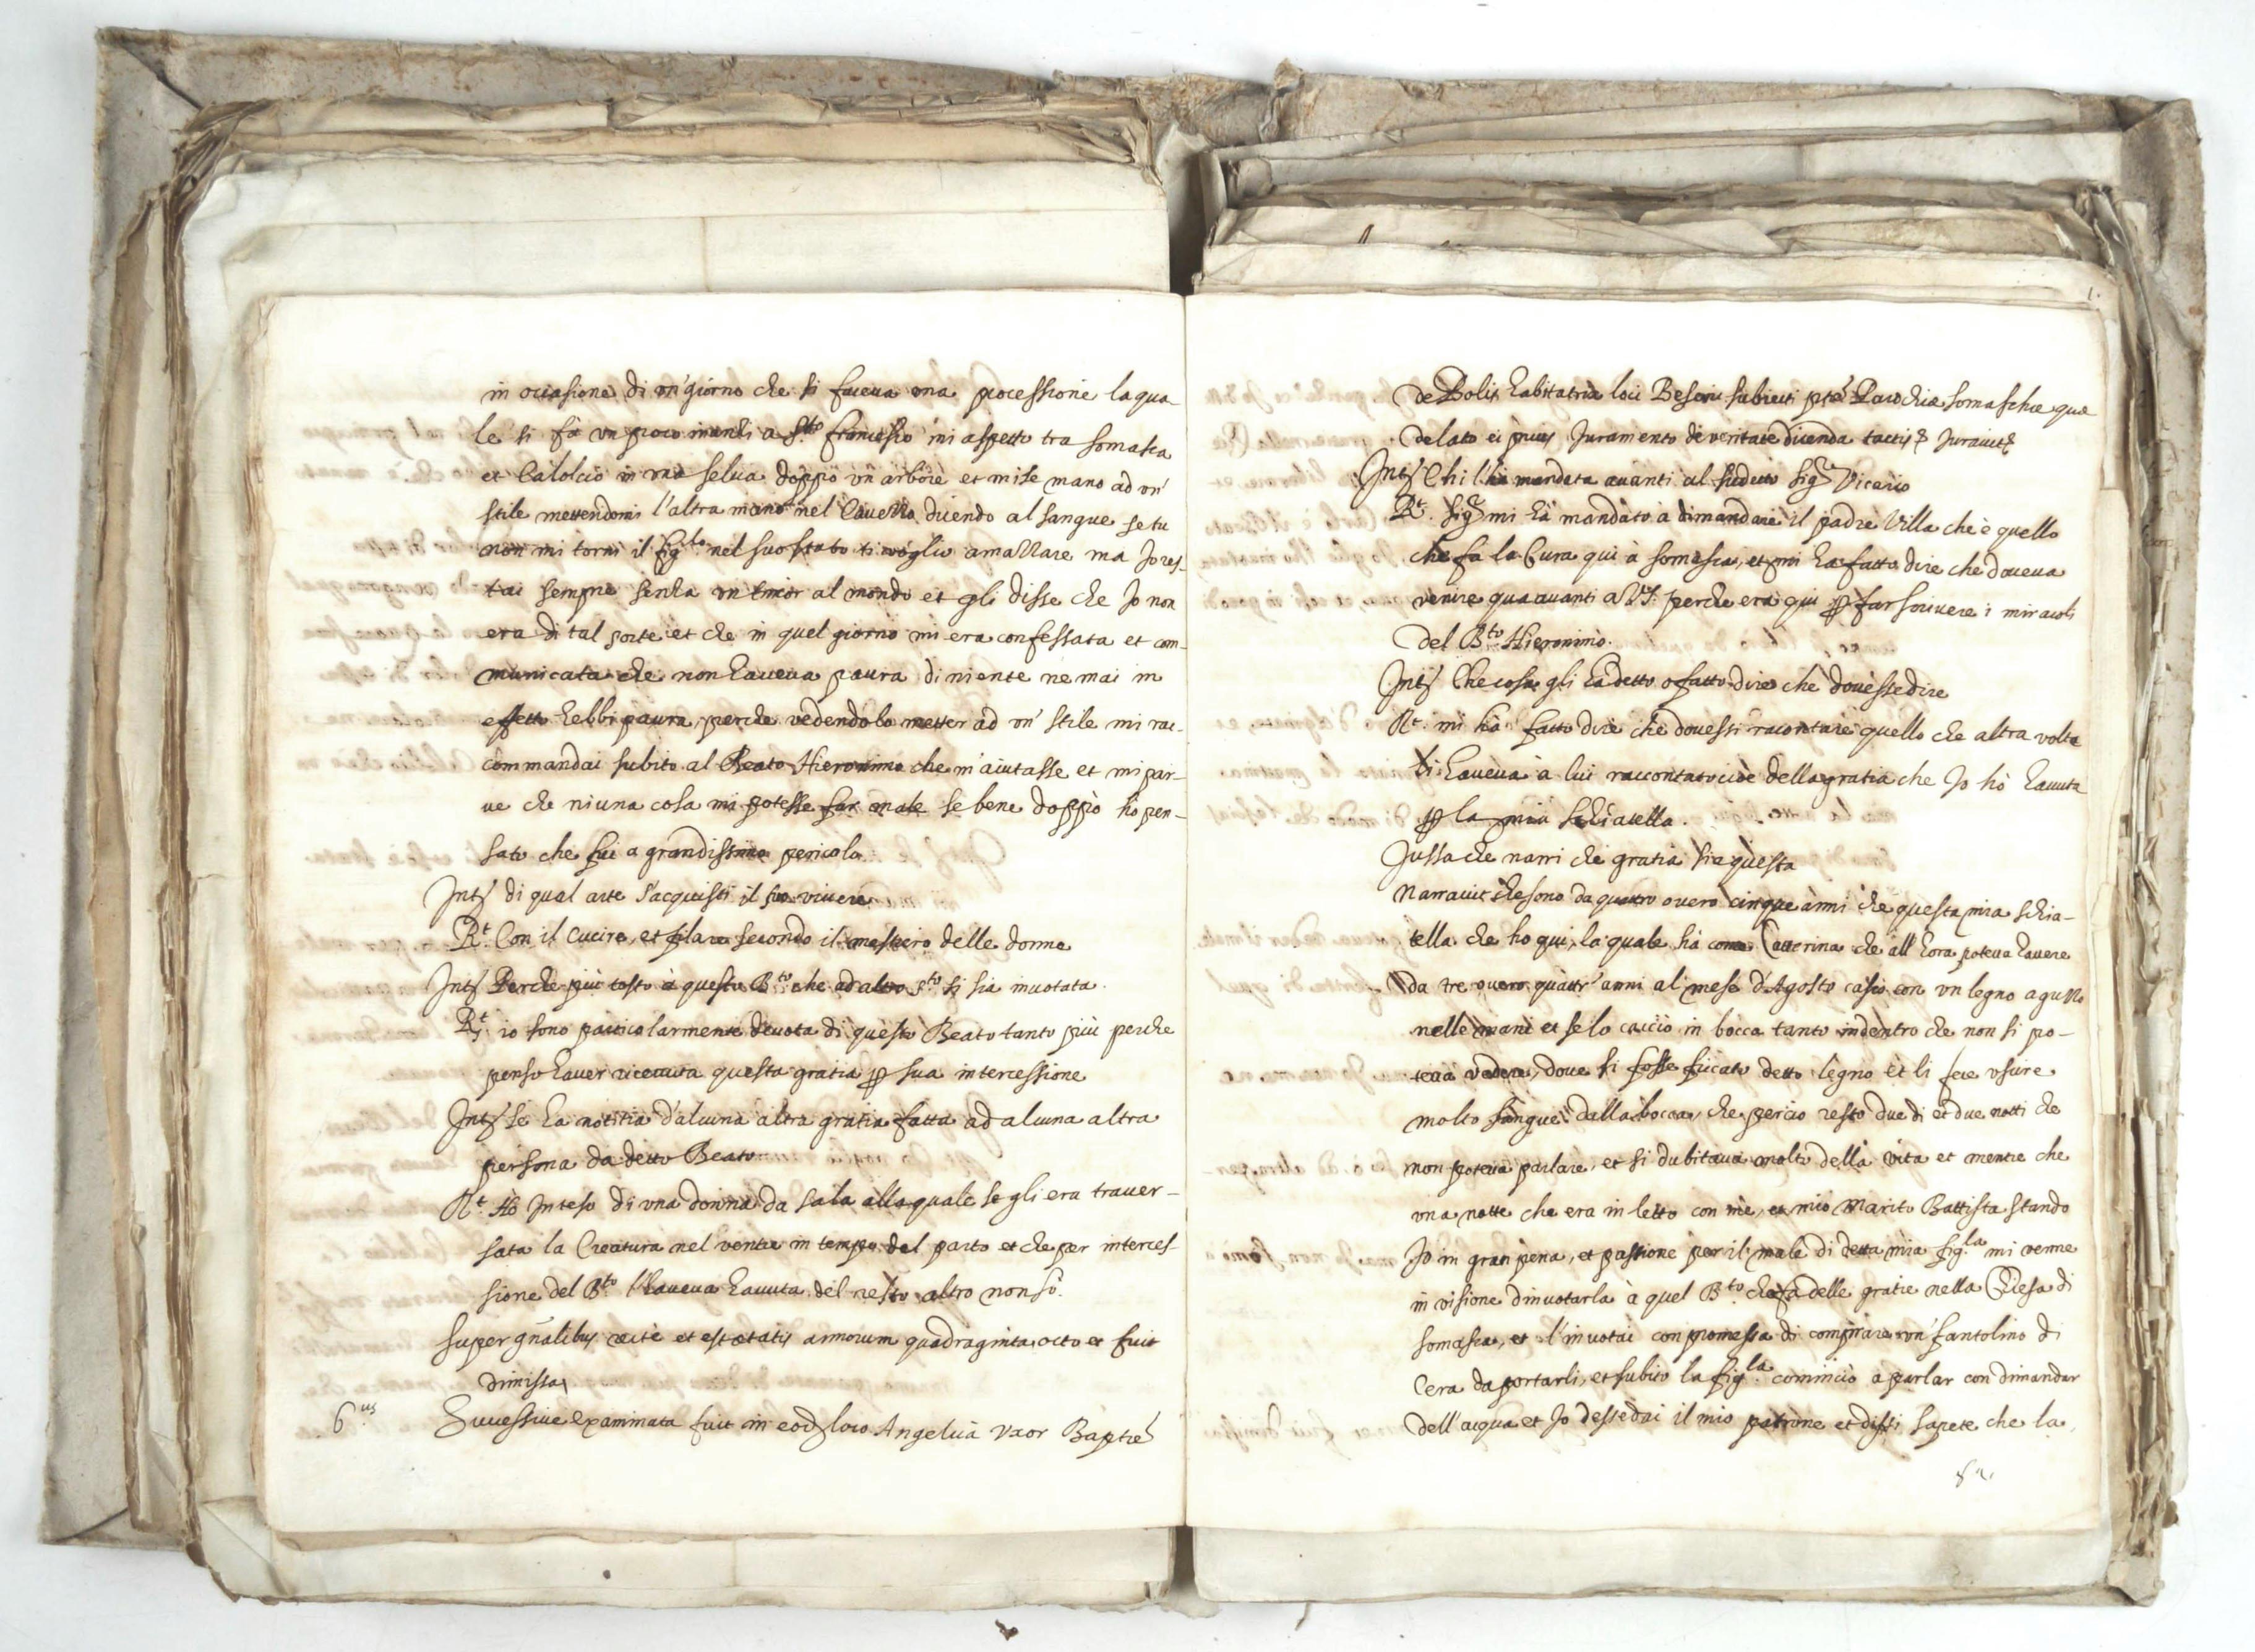 in occasione di un' giorno che si faceua una processione la qua-
le si fà un poco inanzi a S.to Francesco mi aspettò tra Somasca
et Calolcio in una selua doppò un arbore et mise mano ad un'
stile mettendomi l'altra mano nel Cauezzo dicendo al sangue se tu
non mi torni il fig.lo nel suo stato ti voglio amazzare ma Io res-
tai sempre senza un timor al mondo et gli disse che Io non
era di tal sorte et che in quel giorno mi era confessata et com-
municata che non haueua paura di niente ne mai in
effetto hebbi paura, perche vedendolo metter ad un' stile mi rac-
commandai subito al Beato Hieronimo che m'aiutasse et mi par-
ue che niuna cosa mi potesse far male se bene doppò hò pen-
sato che fui a grandissimo pericolo
Int.s di qual arte s'acquisti il suo viuere
R.t Con il cucire, et filare secondo il mestiero delle donne
Int.s Perche più tosto à questo B.to che ad altro S.to si sia inuotata.
R.t io sono particolarmente deuota di questo Beato tanto più perche
penso hauer riceuuta questa gratia p sua intercessione
Int.s se ha notitia d'alcuna altra gratia fatta ad alcuna altra
persona da detto Beato
R.t Hò Inteso di una donna da Sala alla quale se gli era trauer-
sata la Creatura nel ventre in tempo del parto et che per interces-
sione del B.to l'haueua hauuta del resto altro non sò.
Super gnalibus recte et est ætatis annorum quadraginta octo et fuit
dimissa
6.us Successiue examinata fuit in eod loco Angelica vxor Baptæ
1.
de Bolis habitatrix loci Beseni subiecti ptæ Parochiæ Somaschæ quæ
delato ei prius Iuramento de veritate dicenda tactis Iurauit
Int.s Chi l'hà mandata auanti al sudetto Sig.r Vicario
R.t Sig.r mi hà mandato à dimandare il padre Villa che è quello
che fà la Cura qui à Somasca, et mi ha fatto dire che doueua
venire qua auanti a VS. perche era qui p far scriuere i miracoli
del B.to Hieronimo.
Int.s Che cosa gli ha detto o fatto dire che douesse dire
R.t mi hà fatto dire che douessi racontare quello che altra volta
li haueua à lui raccontato cioè della gratia che Io hò hauuta
p la mia schiatella.
Iussa che narri che gratia sia questa
Narrauit che sono da quattro ouero cinque anni che questa mia schia-
tella che ho qui, la quale hà nome Catterina che all'hora poteua hauere
da tre ouero quattr' anni al mese d'Agosto cascò con un legno aguzzo
nelle mani et se lo cacciò in bocca tanto indentro che non si po-
teua vedere, doue si fosse ficcato detto legno et li fece uscire
molto sangue dalla bocca, che perciò restò due dì et due notti che
non poteua parlare, et si dubitaua molto della vita et mentre che
una notte che era in letto con mè, et mio Marito Battista stando
Io in gran pena, et passione per il male di detta mia fig.la mi venne
in visione d'inuotarla à quel B.to che fà delle gratie nella Chiesa di
Somasca, et l'inuotai con promessa di comprare un' fantolino di
Cera da portarli, et subito la fig.la cominciò a parlar con dimandar
dell'acqua et Io dessedai il mio patrone et dissi sapete che la